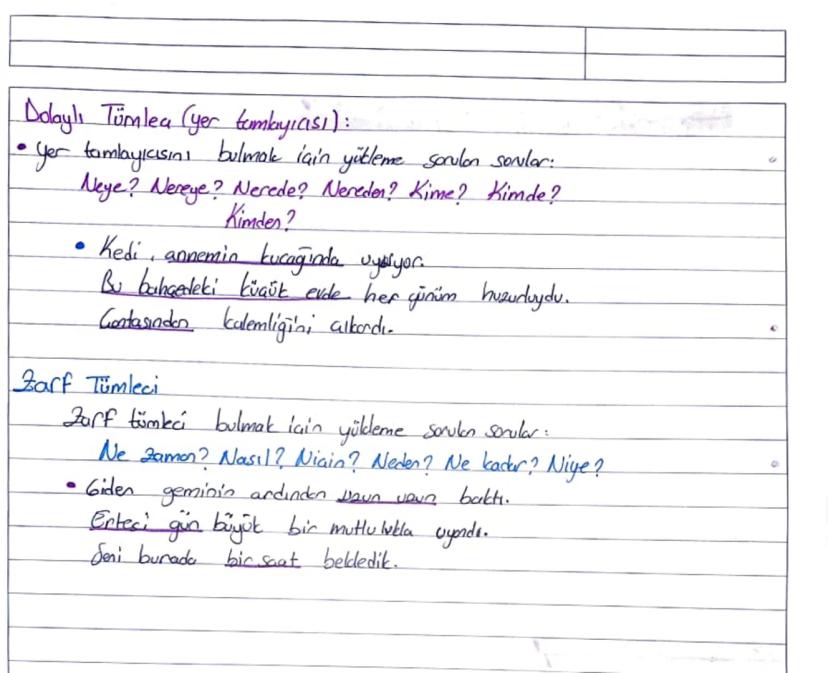 Dolaylı Tümlec (yer tamlayıcısı):
• Yer tamlayıcısını bulmak için yükleme sorulan sorular:
Neye? Nereye? Nerede? Nereden? Kime? Kimde?
Kimden?
• Kedi, annemin kucağında uyuyor.
Bu bahçedeki küçük evde her günüm huzurluydu.
Çantasından kalemliğini çıkardı.
Zarf Tümleci
Zarf tümleci bulmak için yükleme sorulan sorular:
Ne zaman? Nasıl? Niçin? Neden? Ne kadar? Niye?
• Giden geminin ardından uzun uzun baktı.
Ertesi gün büyük bir mutlulukla uyandı.
Seni burada bir saat bekledik.